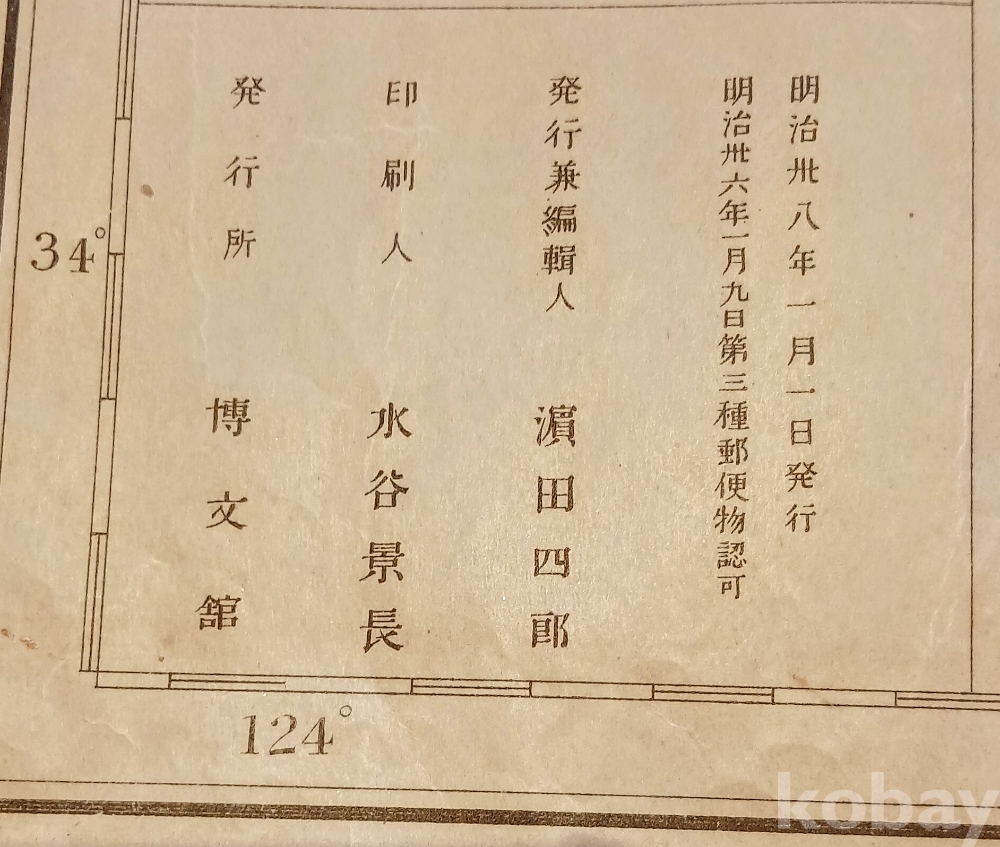 明治卅八年一月一日発行
明治卅六年一月九日第三種郵便物認可
発行兼編輯人 濵田四郎
印刷人 水谷景長
発行所 博文館
34°
124°
kobay